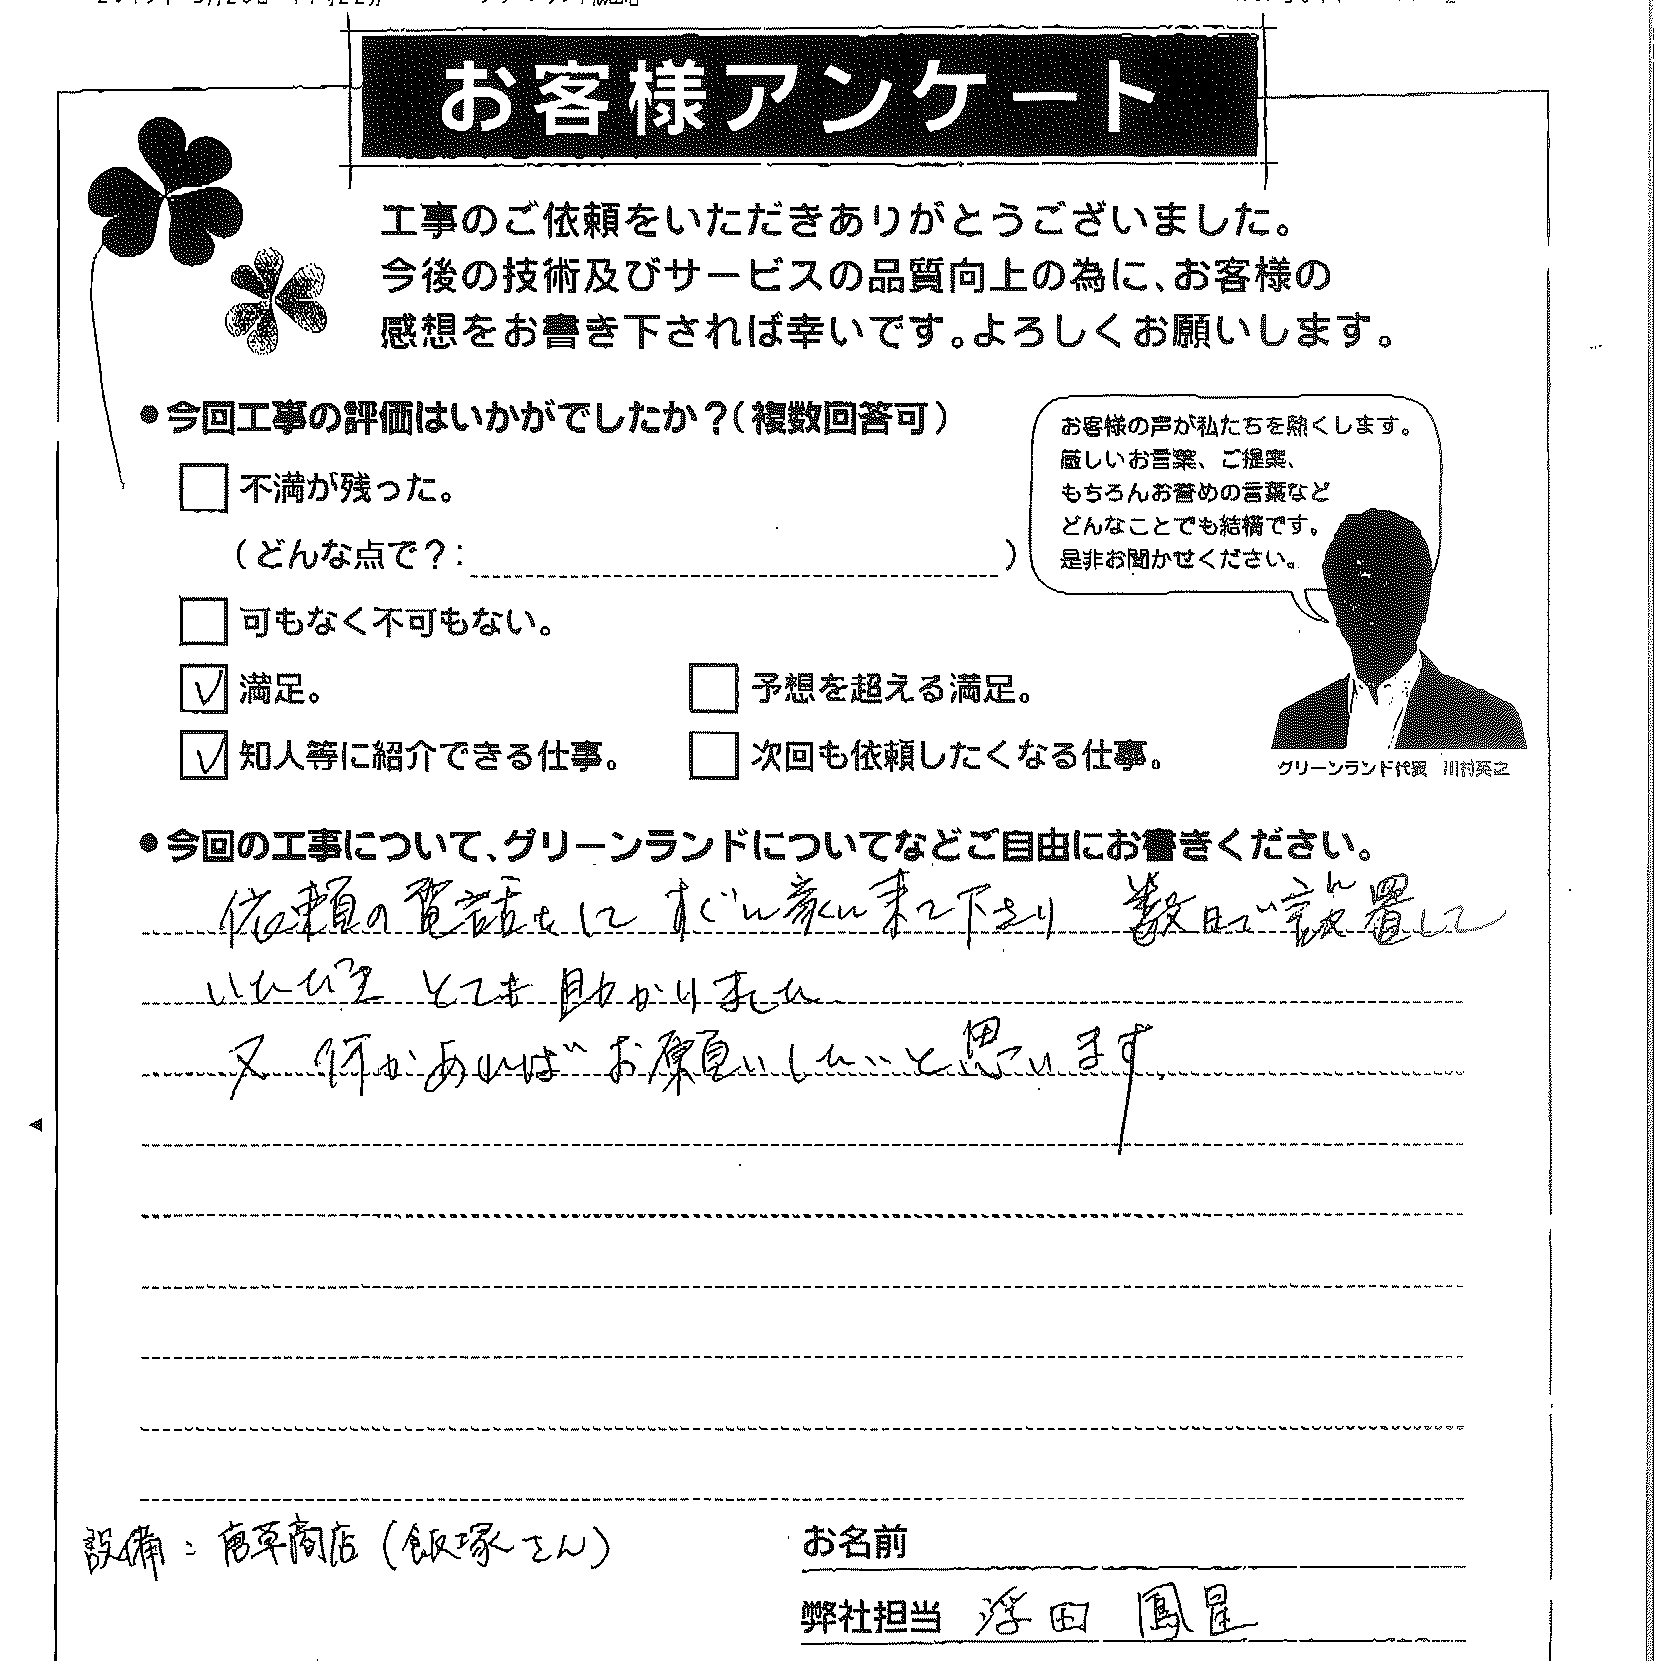 お客様アンケート
工事のご依頼をいただきありがとうございました。
今後の技術及びサービスの品質向上の為に、お客様の
感想をお書き下されば幸いです。よろしくお願いします。
●今回工事の評価はいかがでしたか？（複数回答可）
不満が残った。
（どんな点で？：　）
可もなく不可もない。
満足。
予想を超える満足。
知人等に紹介できる仕事。
次回も依頼したくなる仕事。
お客様の声が私たちを熱くします。
厳しいお言葉、ご提案、
もちろんお誉めの言葉など
どんなことでも結構です。
是非お聞かせください。
グリーンランド代表 川村英之
●今回の工事について、グリーンランドについてなどご自由にお書きください。
依頼の電話をして すぐに家に来て下さり 数日で設置して
いただき とても助かりました
又 何かあればお願いしたいと思います
設備：唐草商店（飯塚さん）
お名前
弊社担当 浮田 鳳星